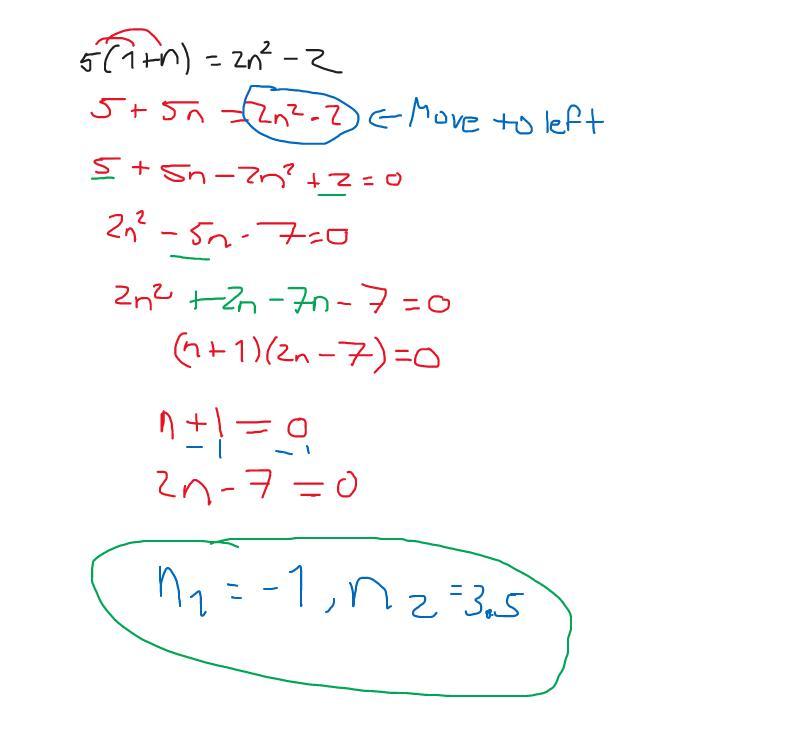 5(1+n) = 2n² - 2
5 + 5n = 2n² - 2 ← Move to left
5 + 5n - 2n² + 2 = 0
2n² - 5n - 7 = 0
2n² + 2n - 7n - 7 = 0
(n + 1)(2n - 7) = 0
n + 1 = 0
-1 -1
2n - 7 = 0
n₁ = -1, n₂ = 3.5